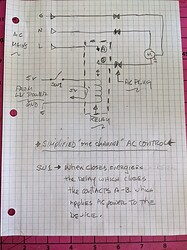 E
N
L
AC
MAINS
M
A
B
AC PLUG
5V
SW1
FROM
AC POWER
GND
RELAY
* Simplified "one channel" AC CONTROL *
SW1 → When closed energizes
the relay which closes
the contacts A-B which
applies AC power to the
device.